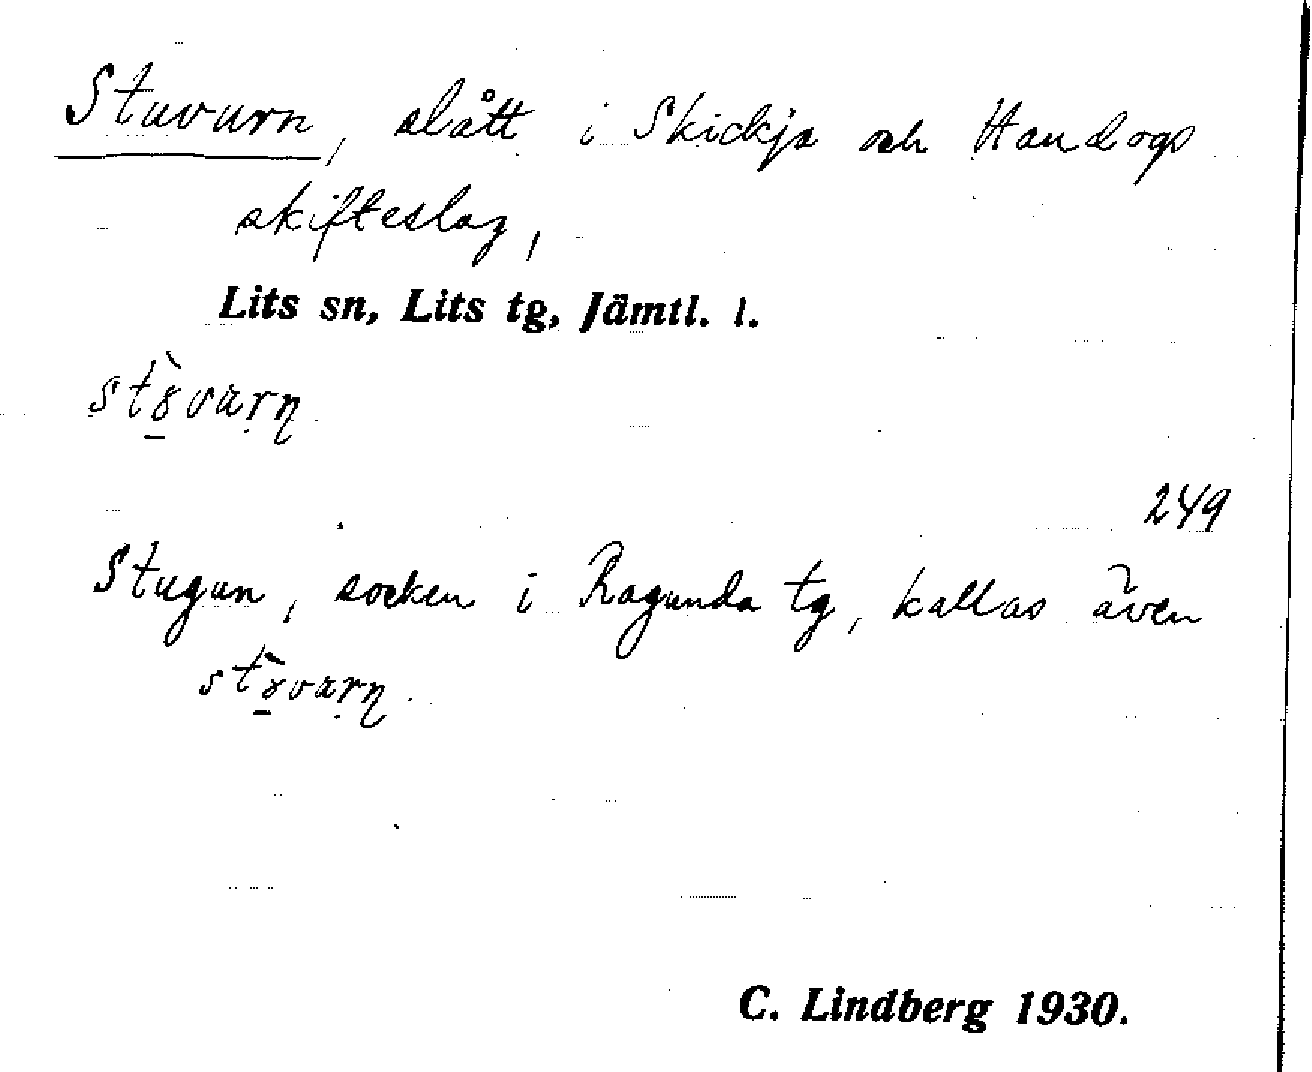 Stuvurn, slått i Skickja och Handogs
skifteslag,
Lits sn, Lits tg, Jämtl. l.
stɤ̲̀vaṛn̡
249
Stugun, socken i Ragunda tg, kallas även
stɤ̲̀vaṛn̡.
C. Lindberg 1930.